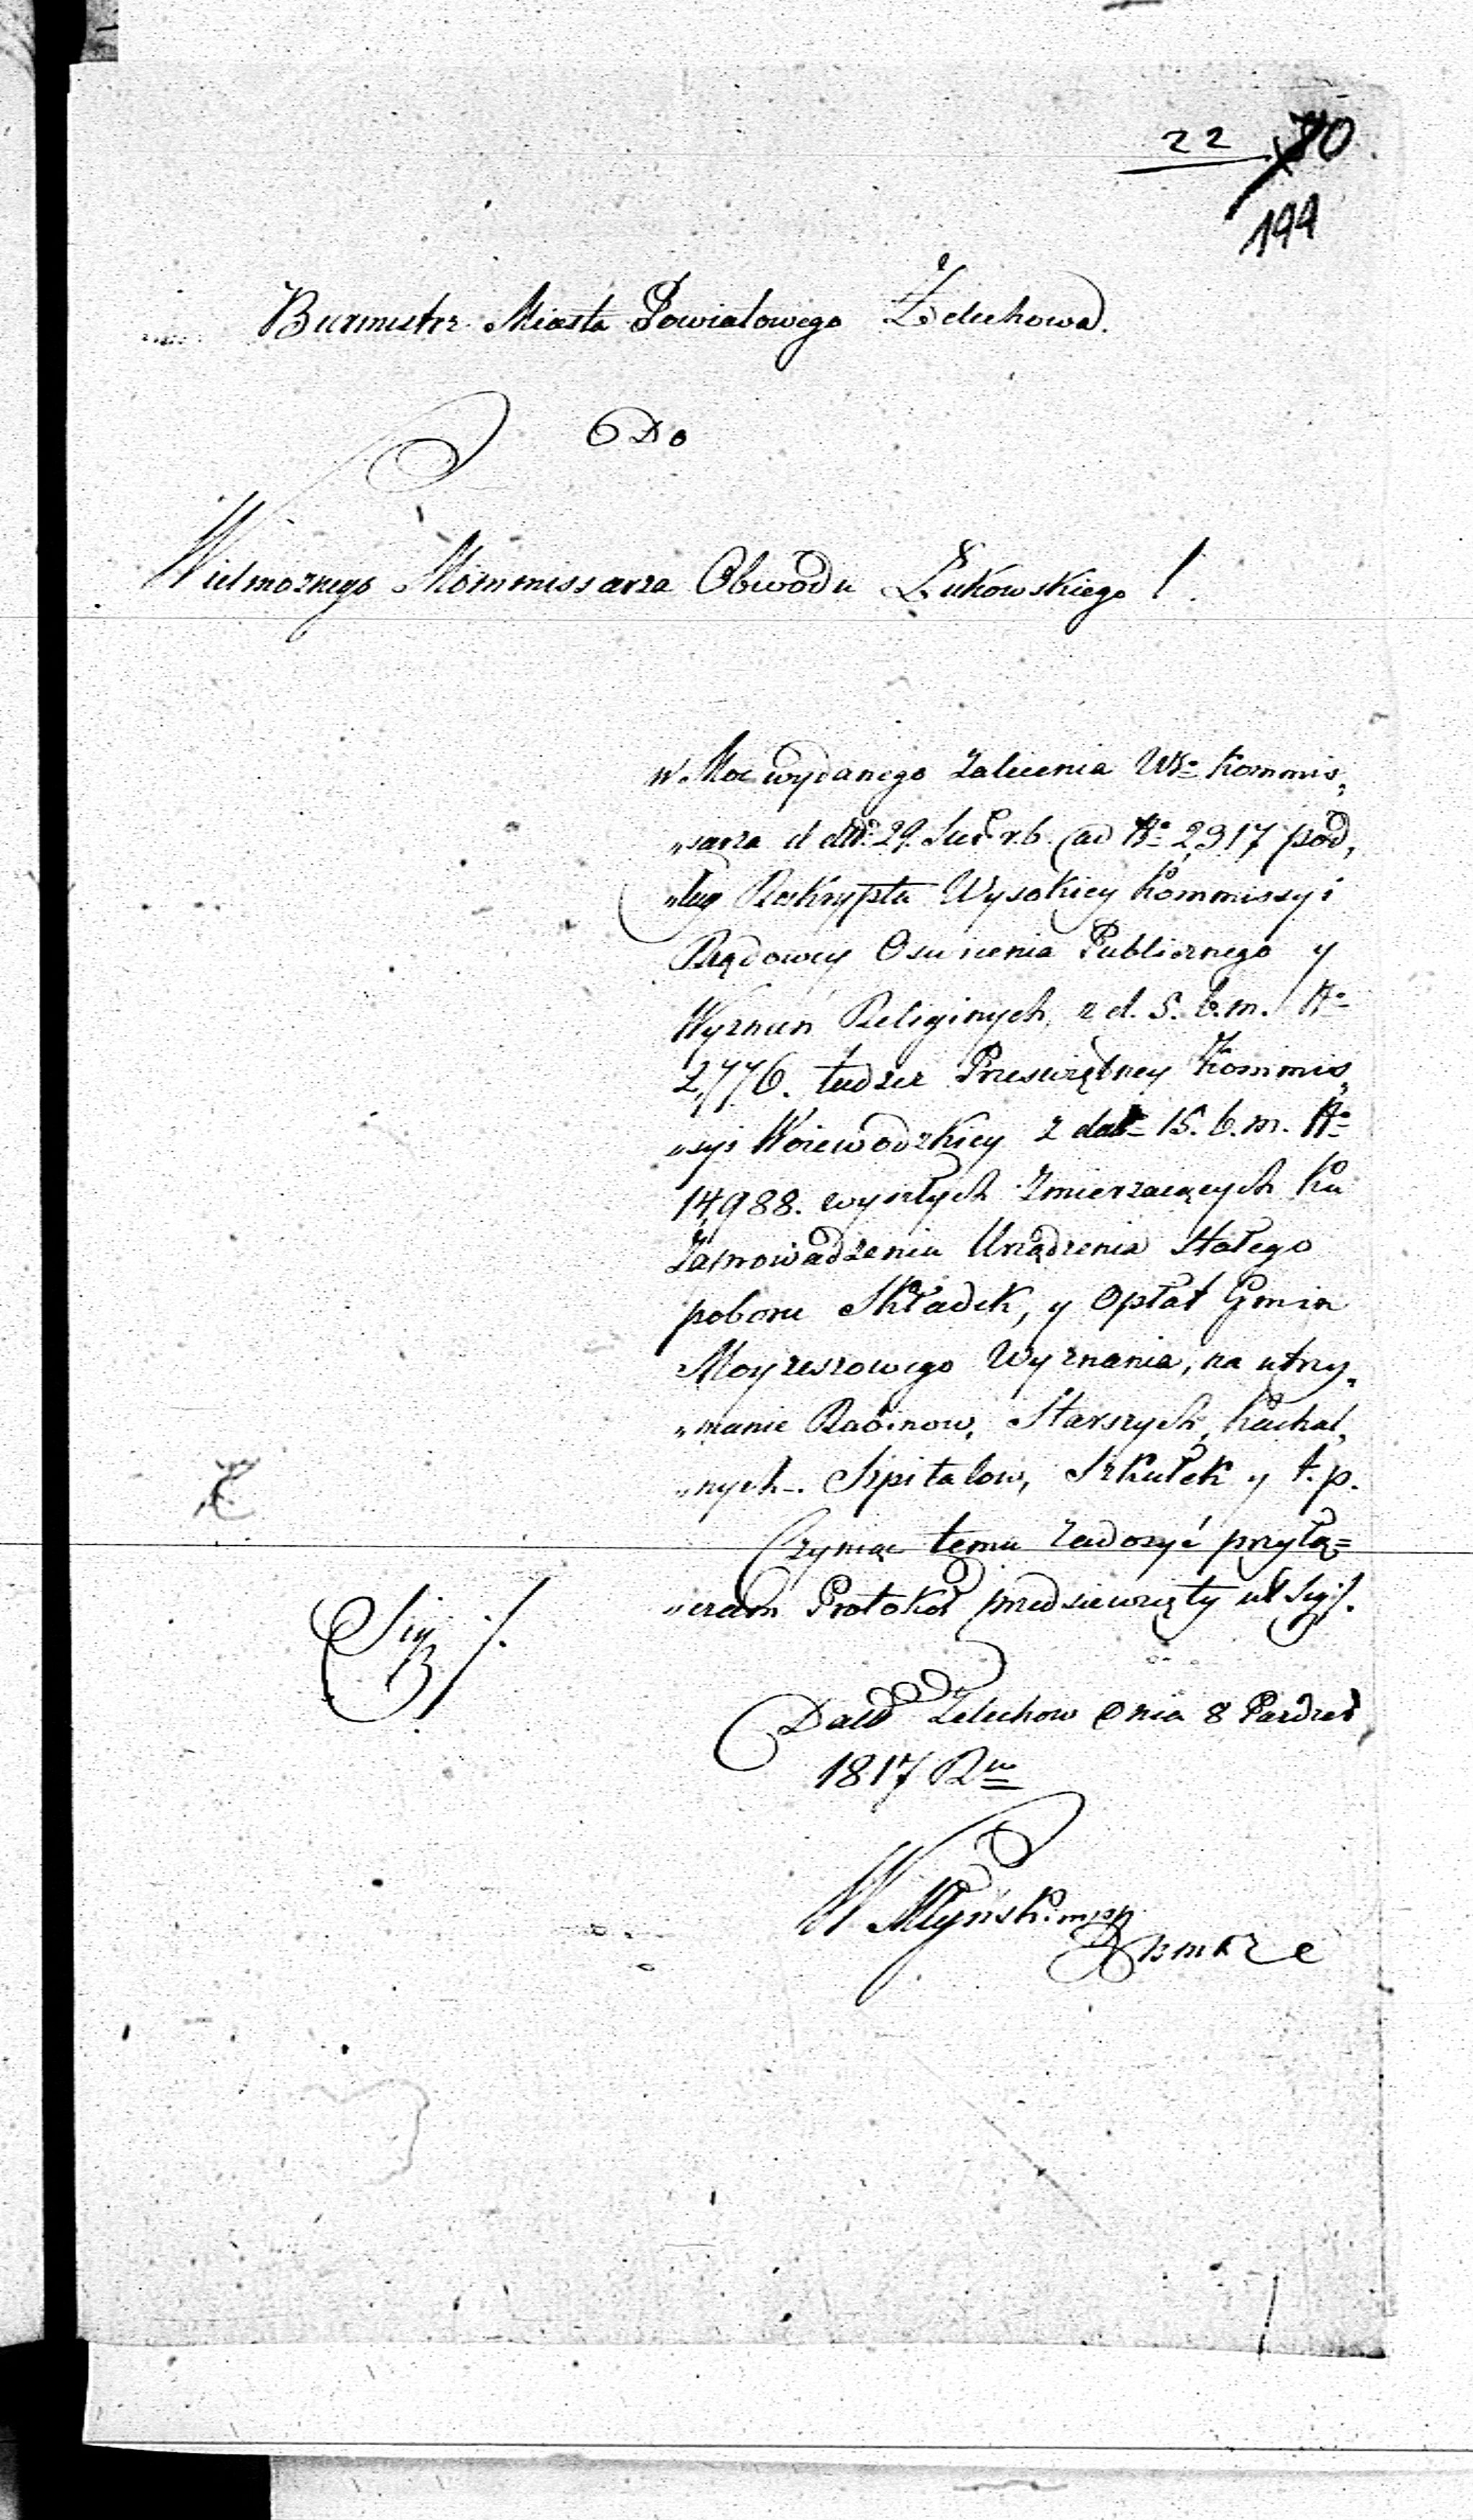 22 70
199
Burmistrz Miasta Powiatowego Żelechowa.
Do
Wielmożnego Kommissarza Obwodu Łukowskiego !
w Moc wydanego Zalecenia WKo Kommis„
„sarza d 29. r.b. ad No 2,317 pod„
„ług Reskryptu Wysokiey Kommissyi
Rządowey Oswicenia Publicznego y
Wyznań Religinych, z d. 5. b.m. No
2,776. tudzież Przeświętney Kommis„
„syi Woiewodzkiey z dat= 15. b.m. No
14,988. wyszłych Zmierzaiących ku
Zaprowadzeniu Urządzenia Stałego
poboru Składek, y Opłat Gmin
Moyzeszowego Wyznania, na utrzy„
„manie Rabinow, Starszych, Kachal„
„nych. Szpitalow, Szkułek y t.p.
Czyniąc temu Zadosyć przyłą=
„czam Protokół przedsiewzięty
Datt Zelechow Dnia 8 Pazdzer
1817 Ru
W Młyński mpp